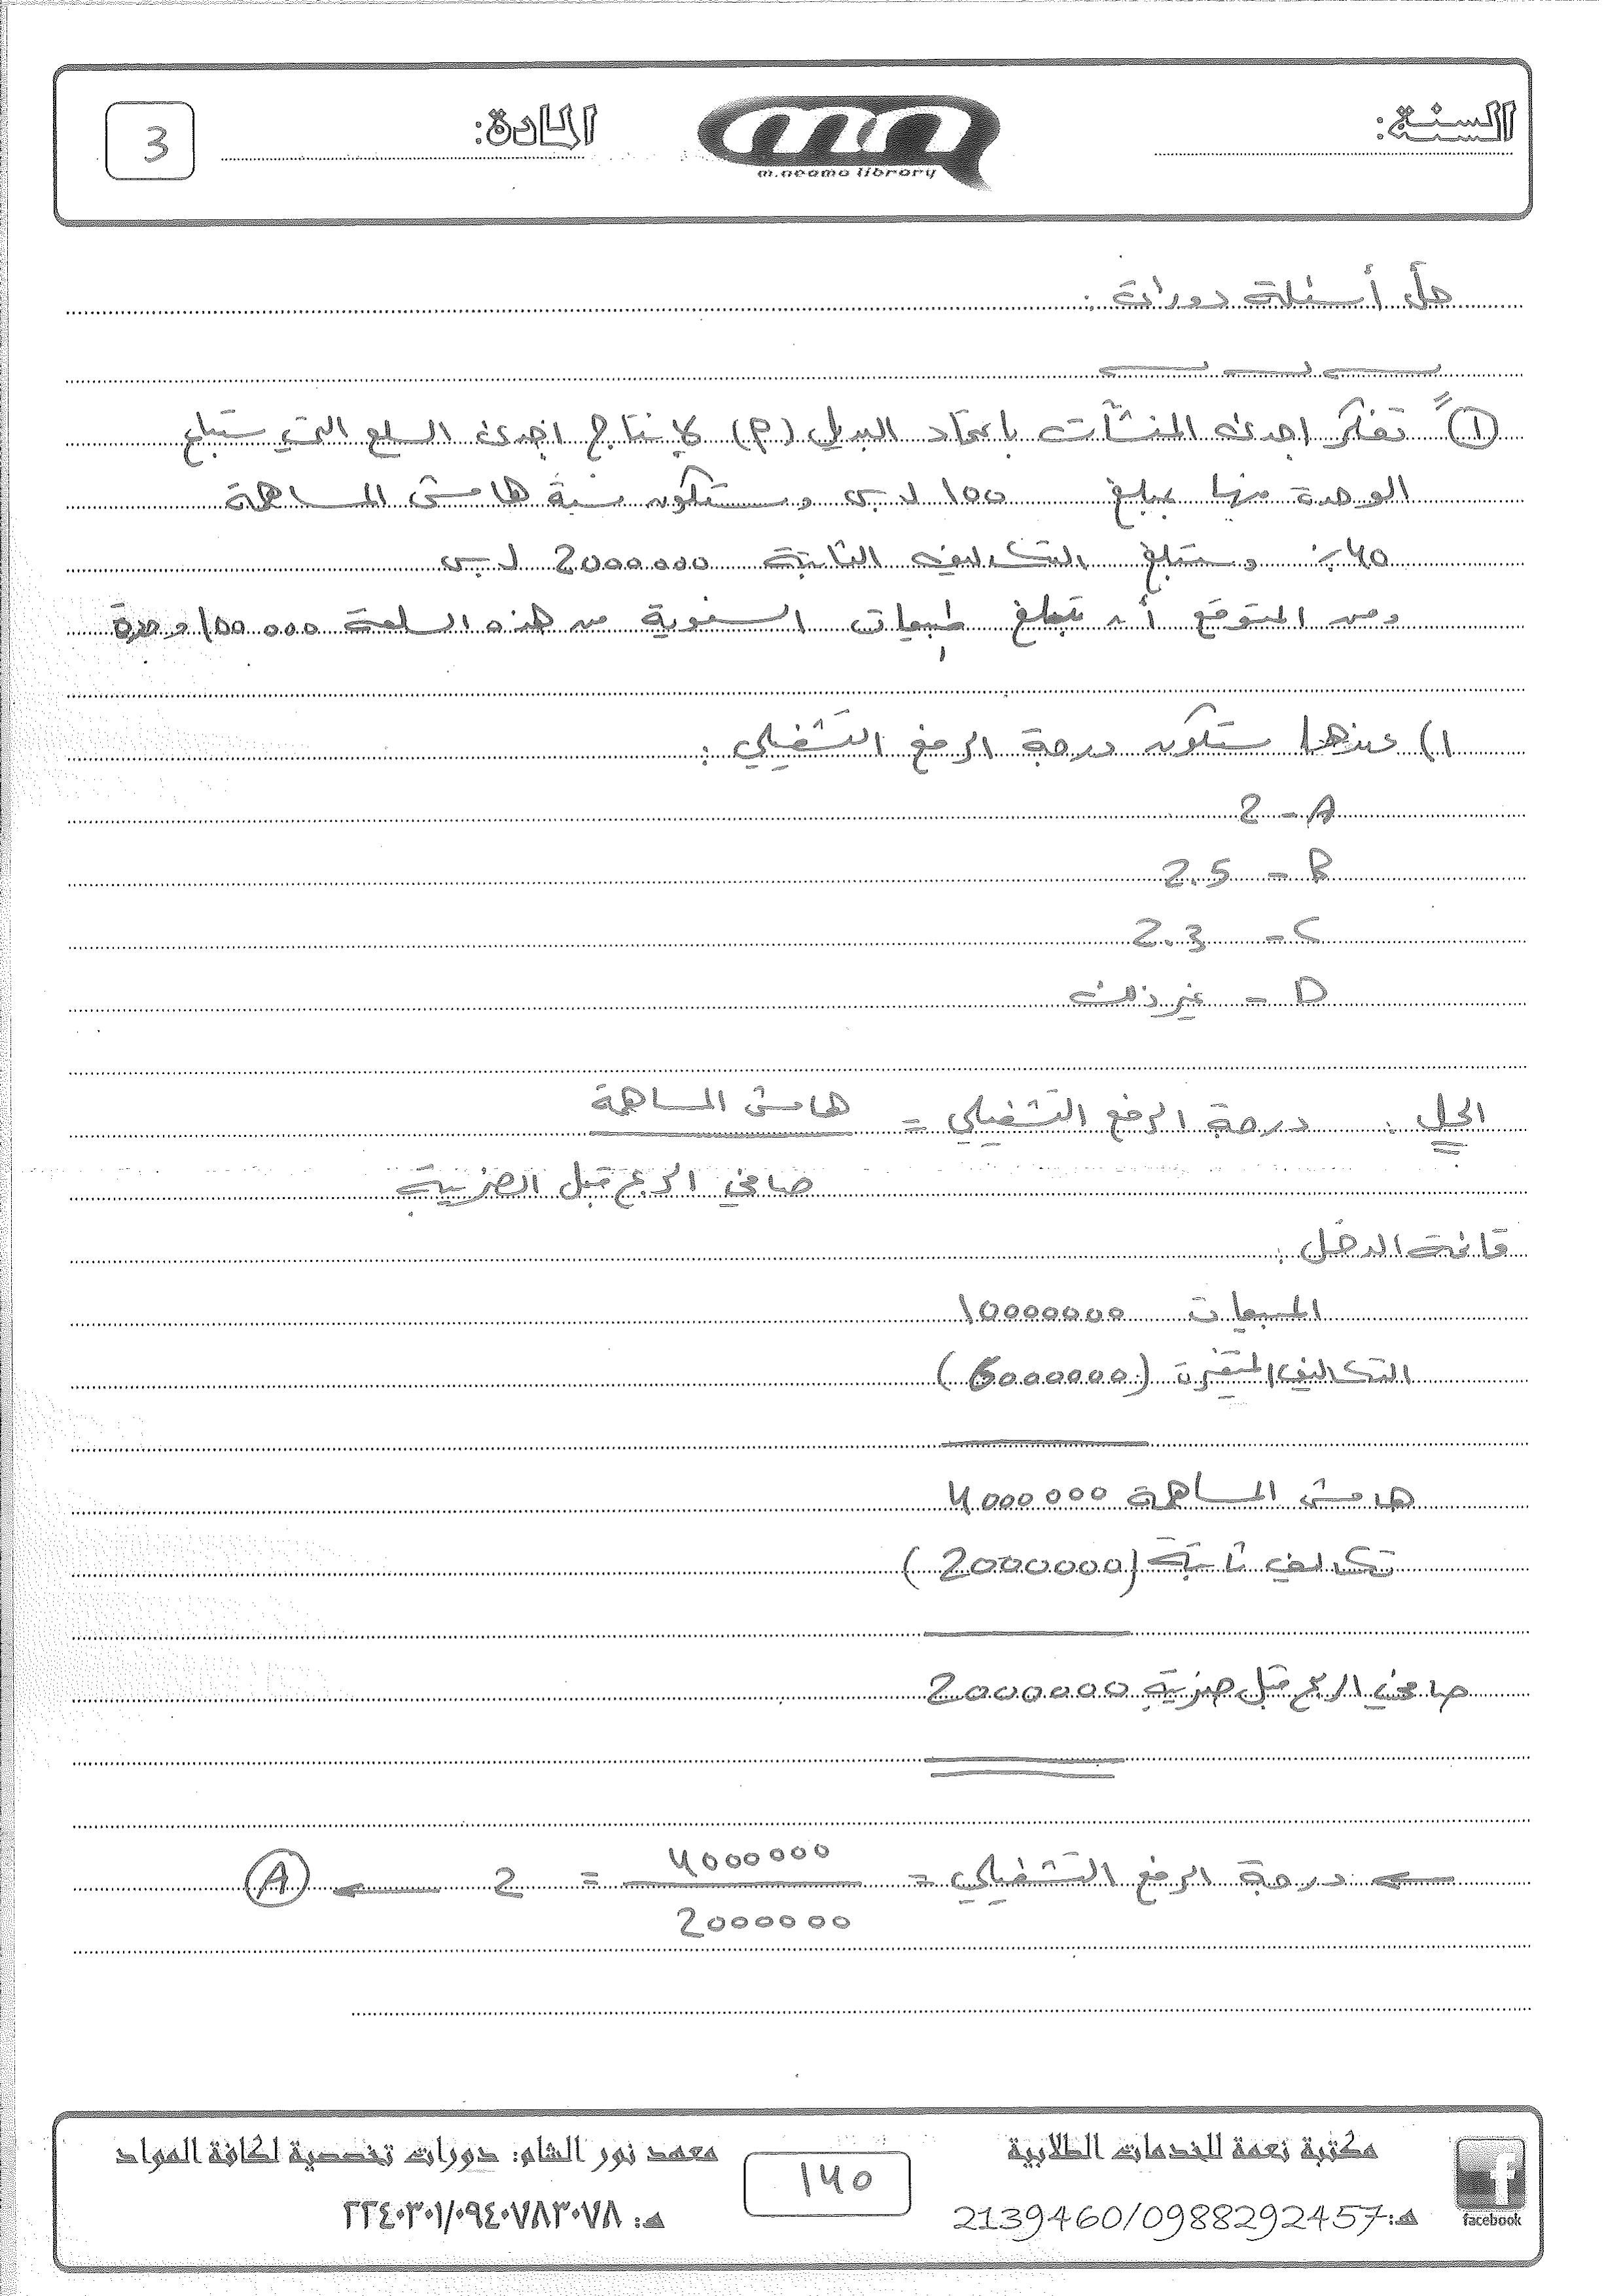 السنة:
m.neama library
المادة:
3
حل أسئلة دورات :
① تفكر احدى المنشآت باعتماد البديل (م) لإنتاج احدى السلع التي ستبلغ
الوحدة منها بمبلغ 100 ل.س وستكون نسبة هامش المساهمة
40٪ وستبلغ التكاليف الثابتة 2000000 ل.س
ومن المتوقع أن تبلغ مبيعات السنوية من هذه السلعة 100000 وحدة
1) عندها ستكون درجة الرفع التشغيلي :
A - 2
B - 2.5
C - 2.3
D - غير ذلك
الحل : درجة الرفع التشغيلي = هامش المساهمة
صافي الربح قبل الضريبة
قائمة الدخل :
المبيعات 10000000
التكاليف المتغيرة (6000000)
هامش المساهمة 4000000
تكاليف ثابتة (2000000)
صافي الربح قبل ضريبة 2000000
← درجة الرفع التشغيلي = 4000000 / 2000000 = 2 ← A
مكتبة نعمة للخدمات الطلابية
معهد نور الشام: دورات تخصصية لكافة المواد
140
هـ: 2139460/0988292457
هـ: ٢٢٤٠٣٠١/٠٩٤٠٧٨٣٠٧٨
facebook